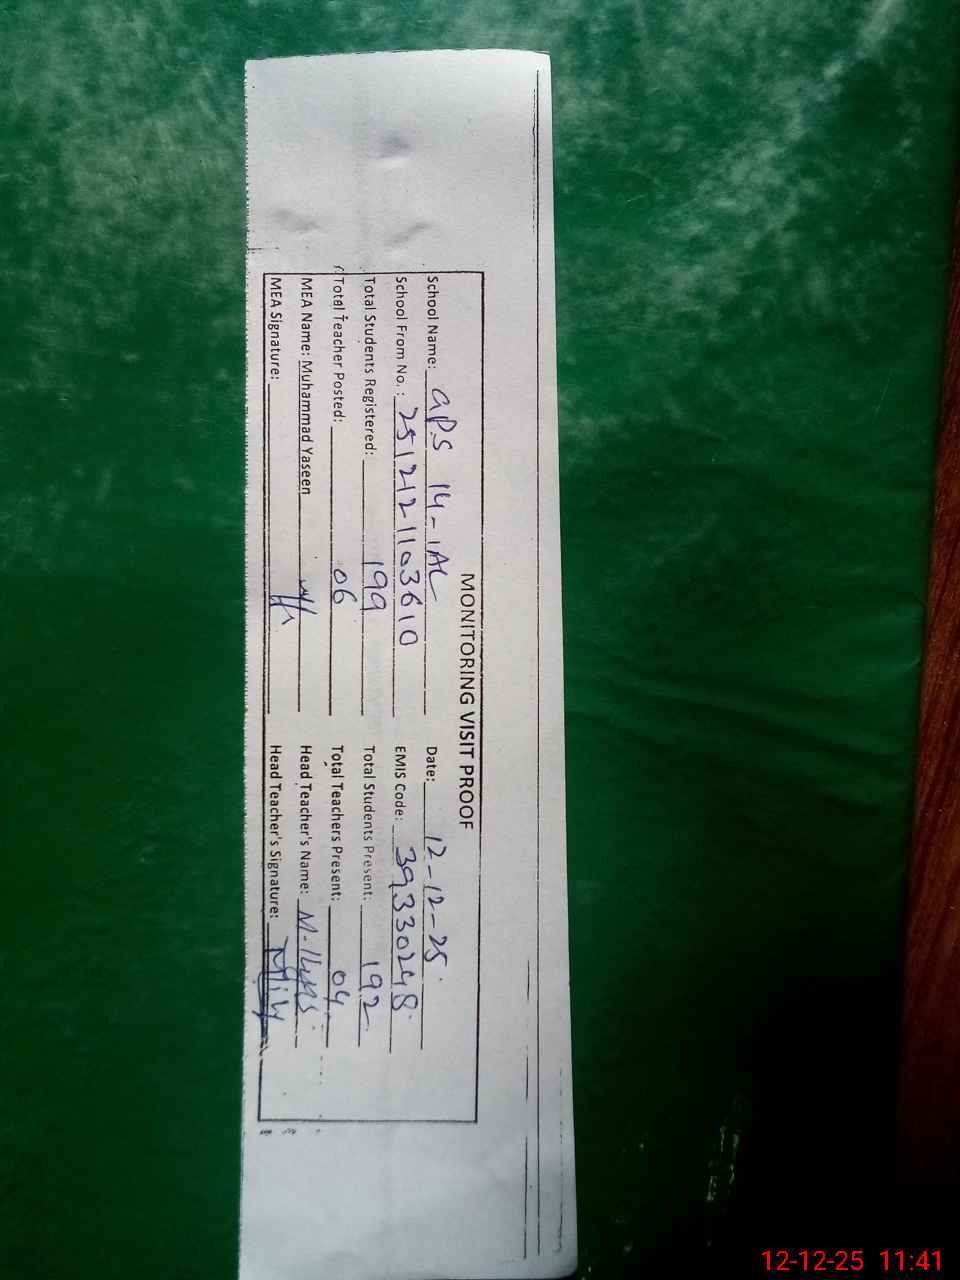 MONITORING VISIT PROOF
School Name: GPS 14-1AL Date: 12-12-25
School From No.: 2512121103610 EMIS Code: 39330248
Total Students Registered: 199 Total Students Present: 192
Total Teacher Posted: 06 Total Teachers Present: 04
MEA Name: Muhammad Yaseen Head Teacher's Name: M. Ilyas
MEA Signature: Head Teacher's Signature:
12-12-25 11:41